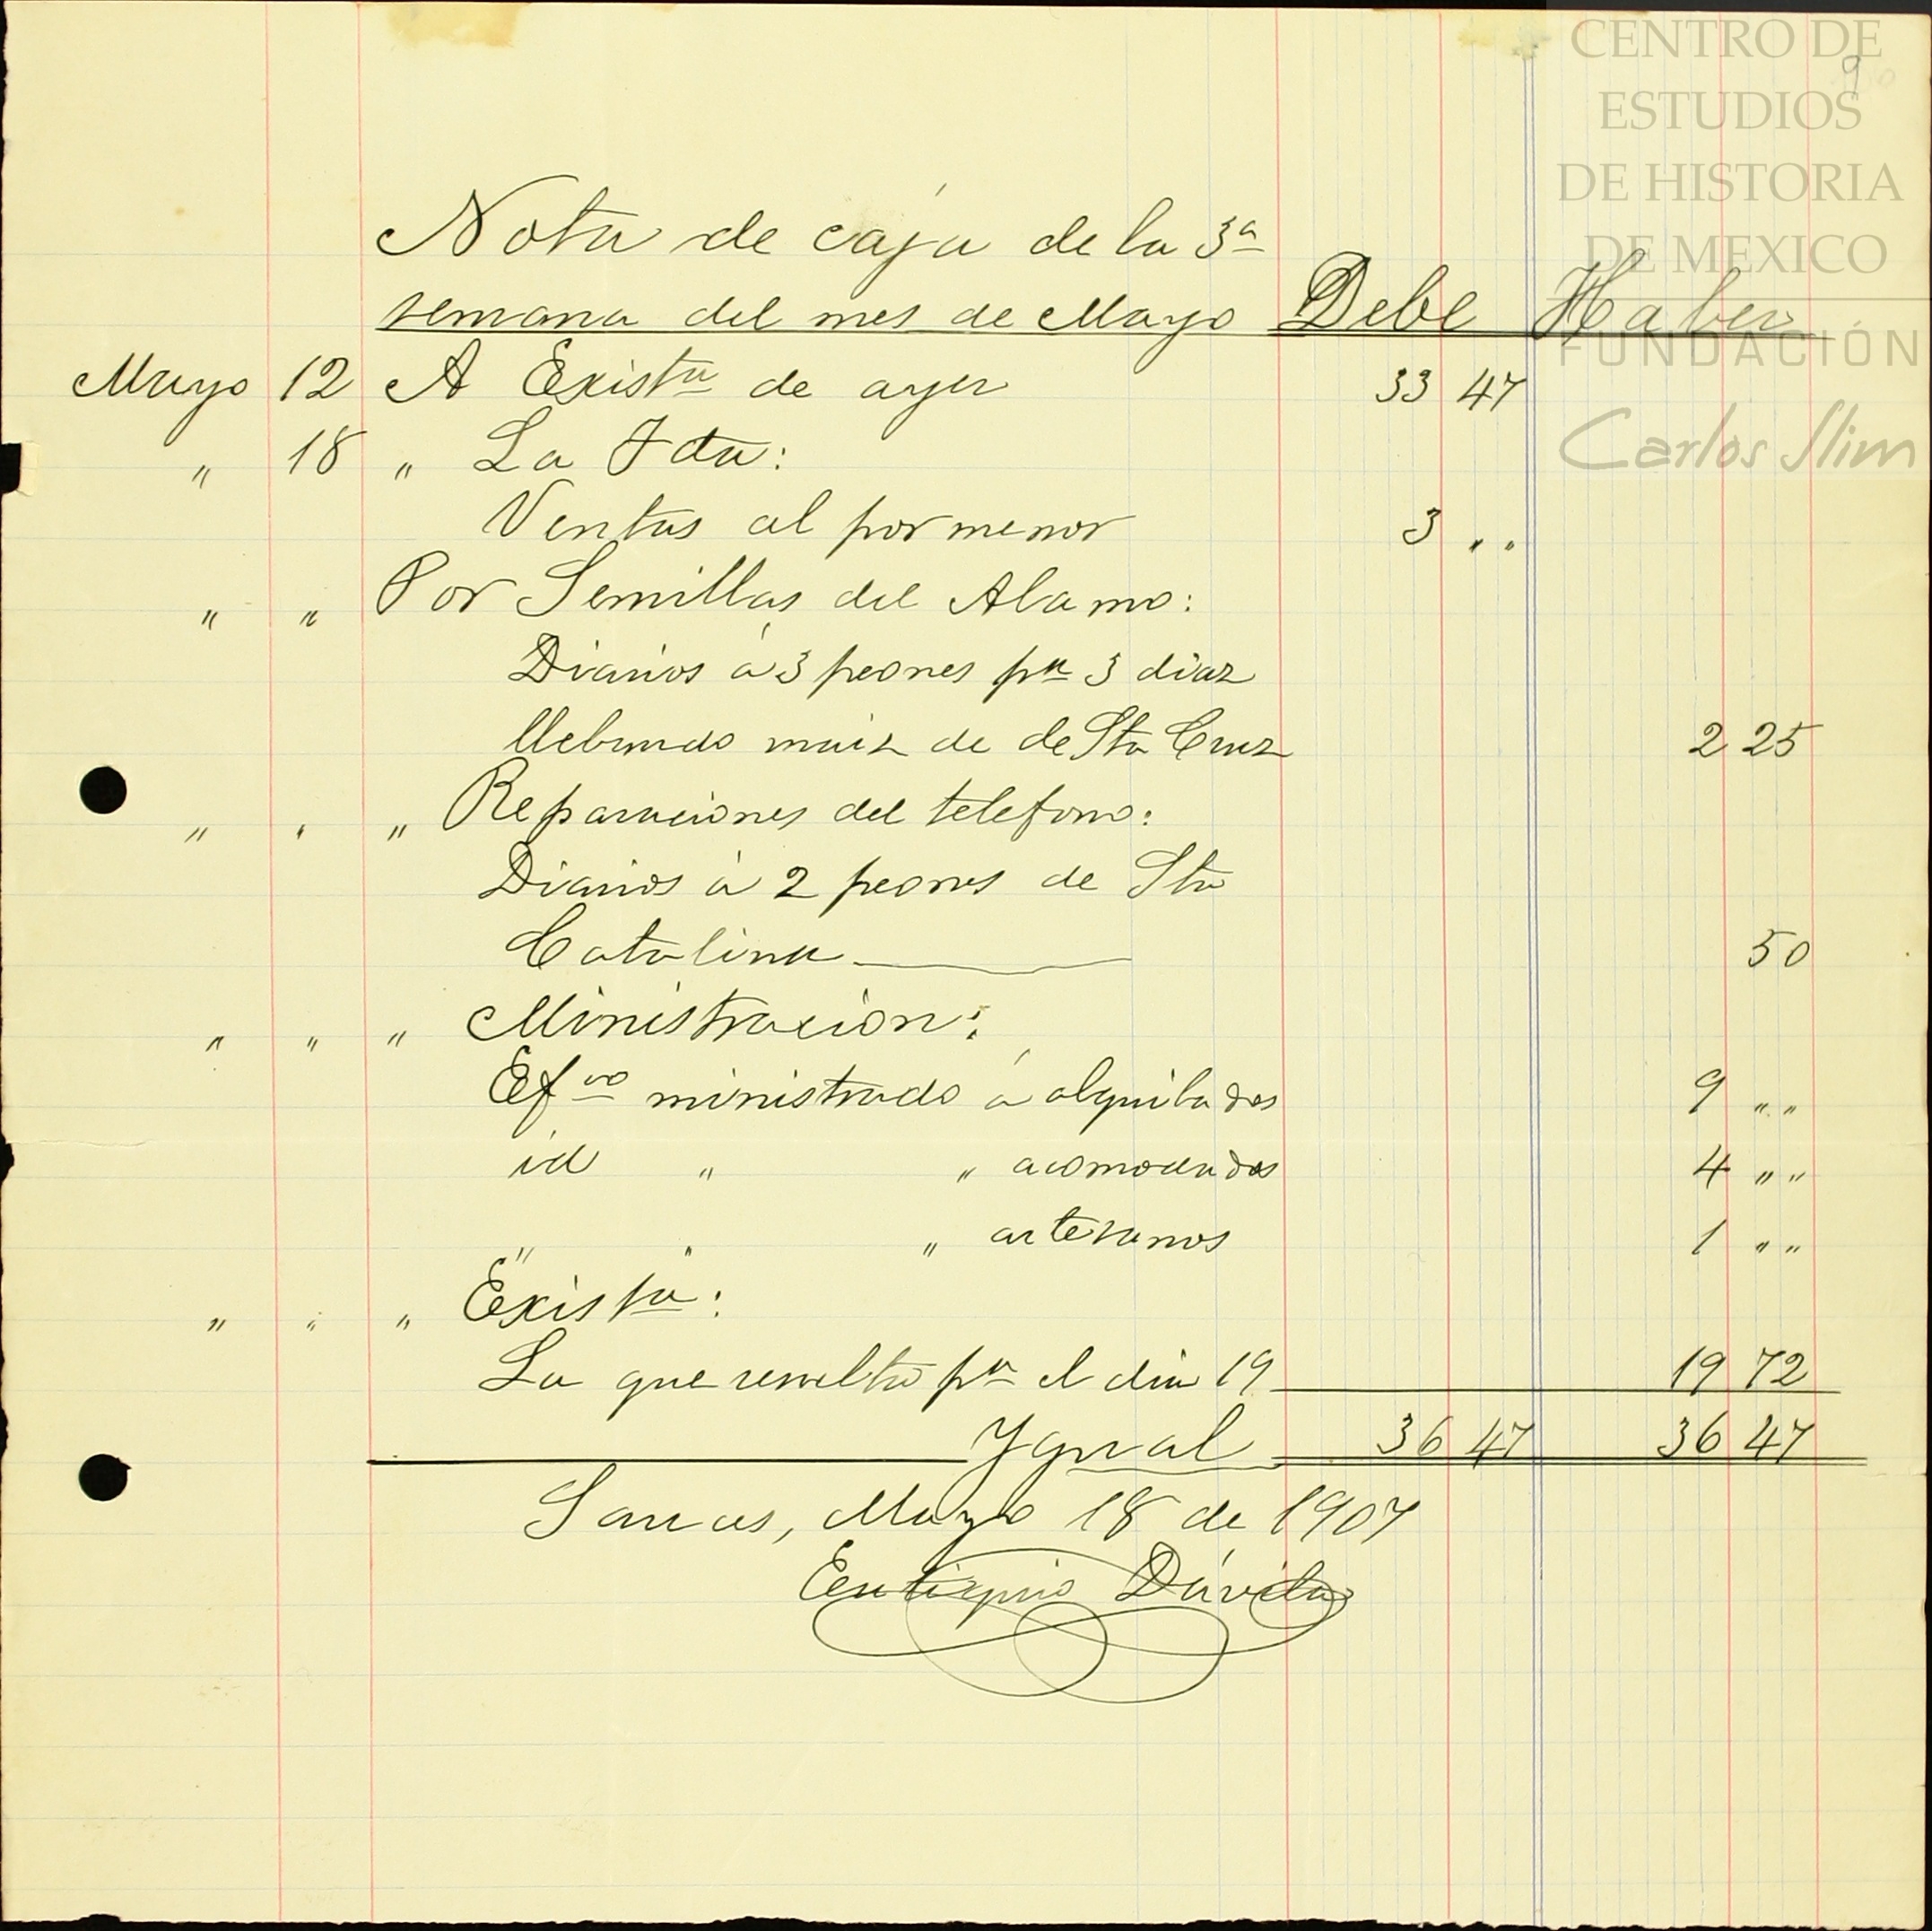 CENTRO DE
ESTUDIOS
DE HISTORIA
DE MEXICO
FUNDACIÓN
Carlos Slim
9
Nota de caja de la 3ª
semana del mes de Mayo Debe Haber
Mayo 12 A Existª de ayer 33 47
" 18 " La Tda:
Ventas al por menor 3 " "
" " Por Semillas del Alamo:
Diarios á 3 peones pª 3 diaz
llebando maiz de de Sta Cruz 2 25
" " " Reparaciones del telefono:
Diarios á 2 peones de Sta
Catalina 50
" " " Ministración:
Efvo ministrado á alquilados 9 " "
id " " acomodados 4 " "
" " " artesanos 1 " "
" " " Existª:
La que resulta pª el dia 19 19 72
Ygual 36 47 36 47
Mayo 18 de 1907
Eutiquio Dávila